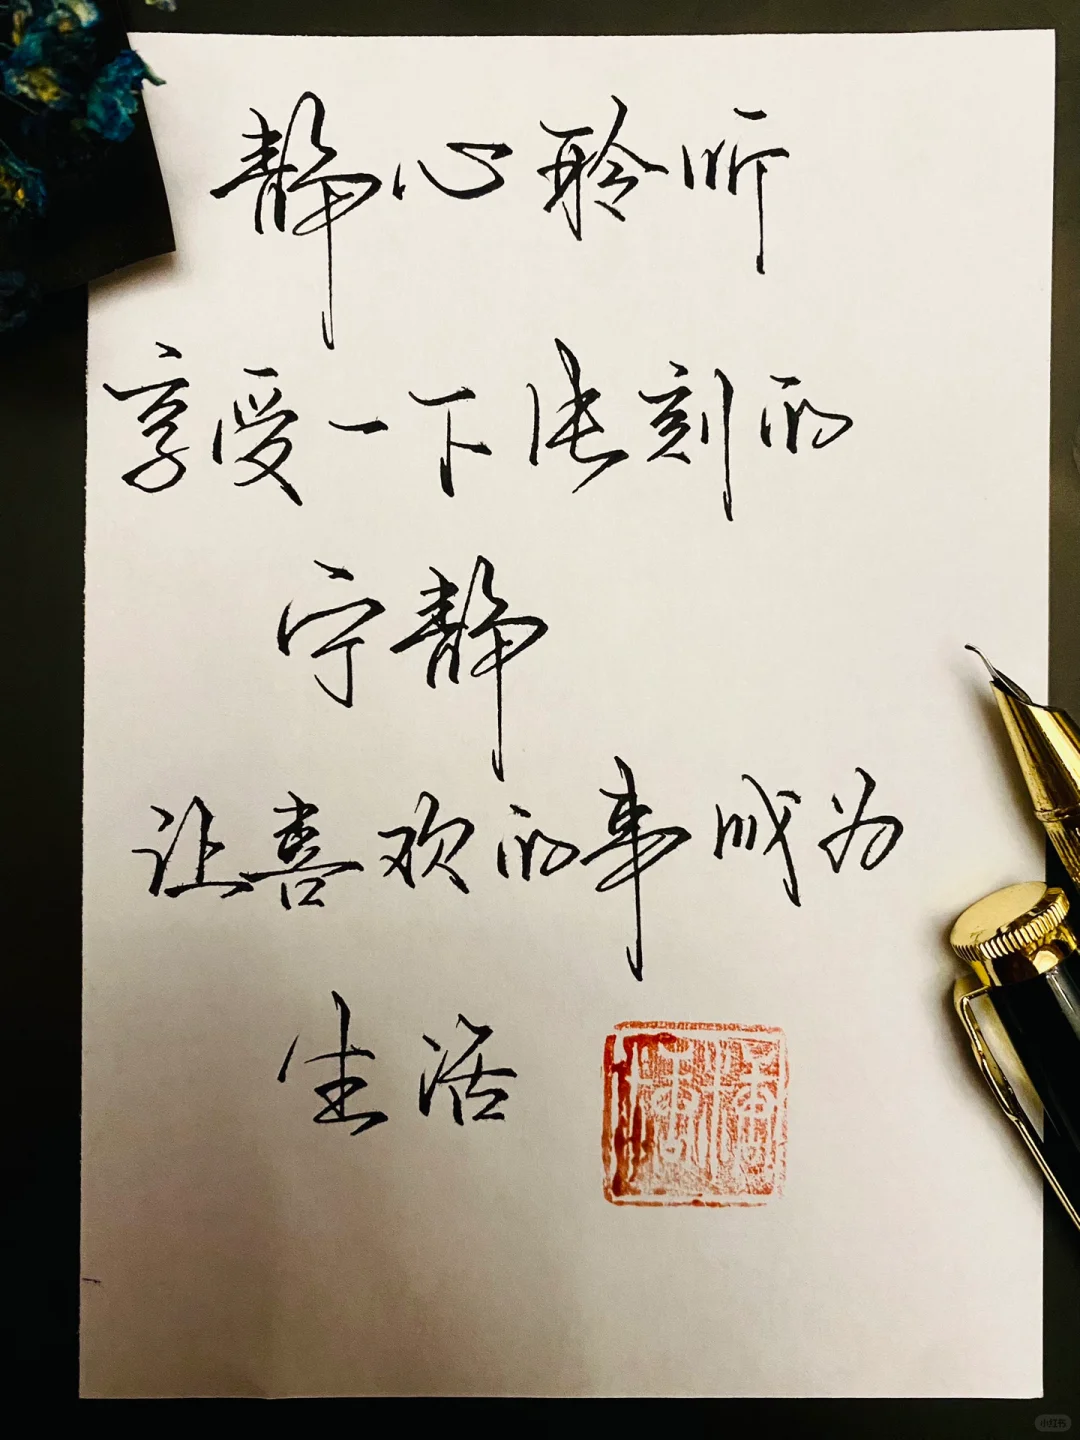 静心聆听
享受一下刻的
宁静
让喜欢的事成为
生活
小红书